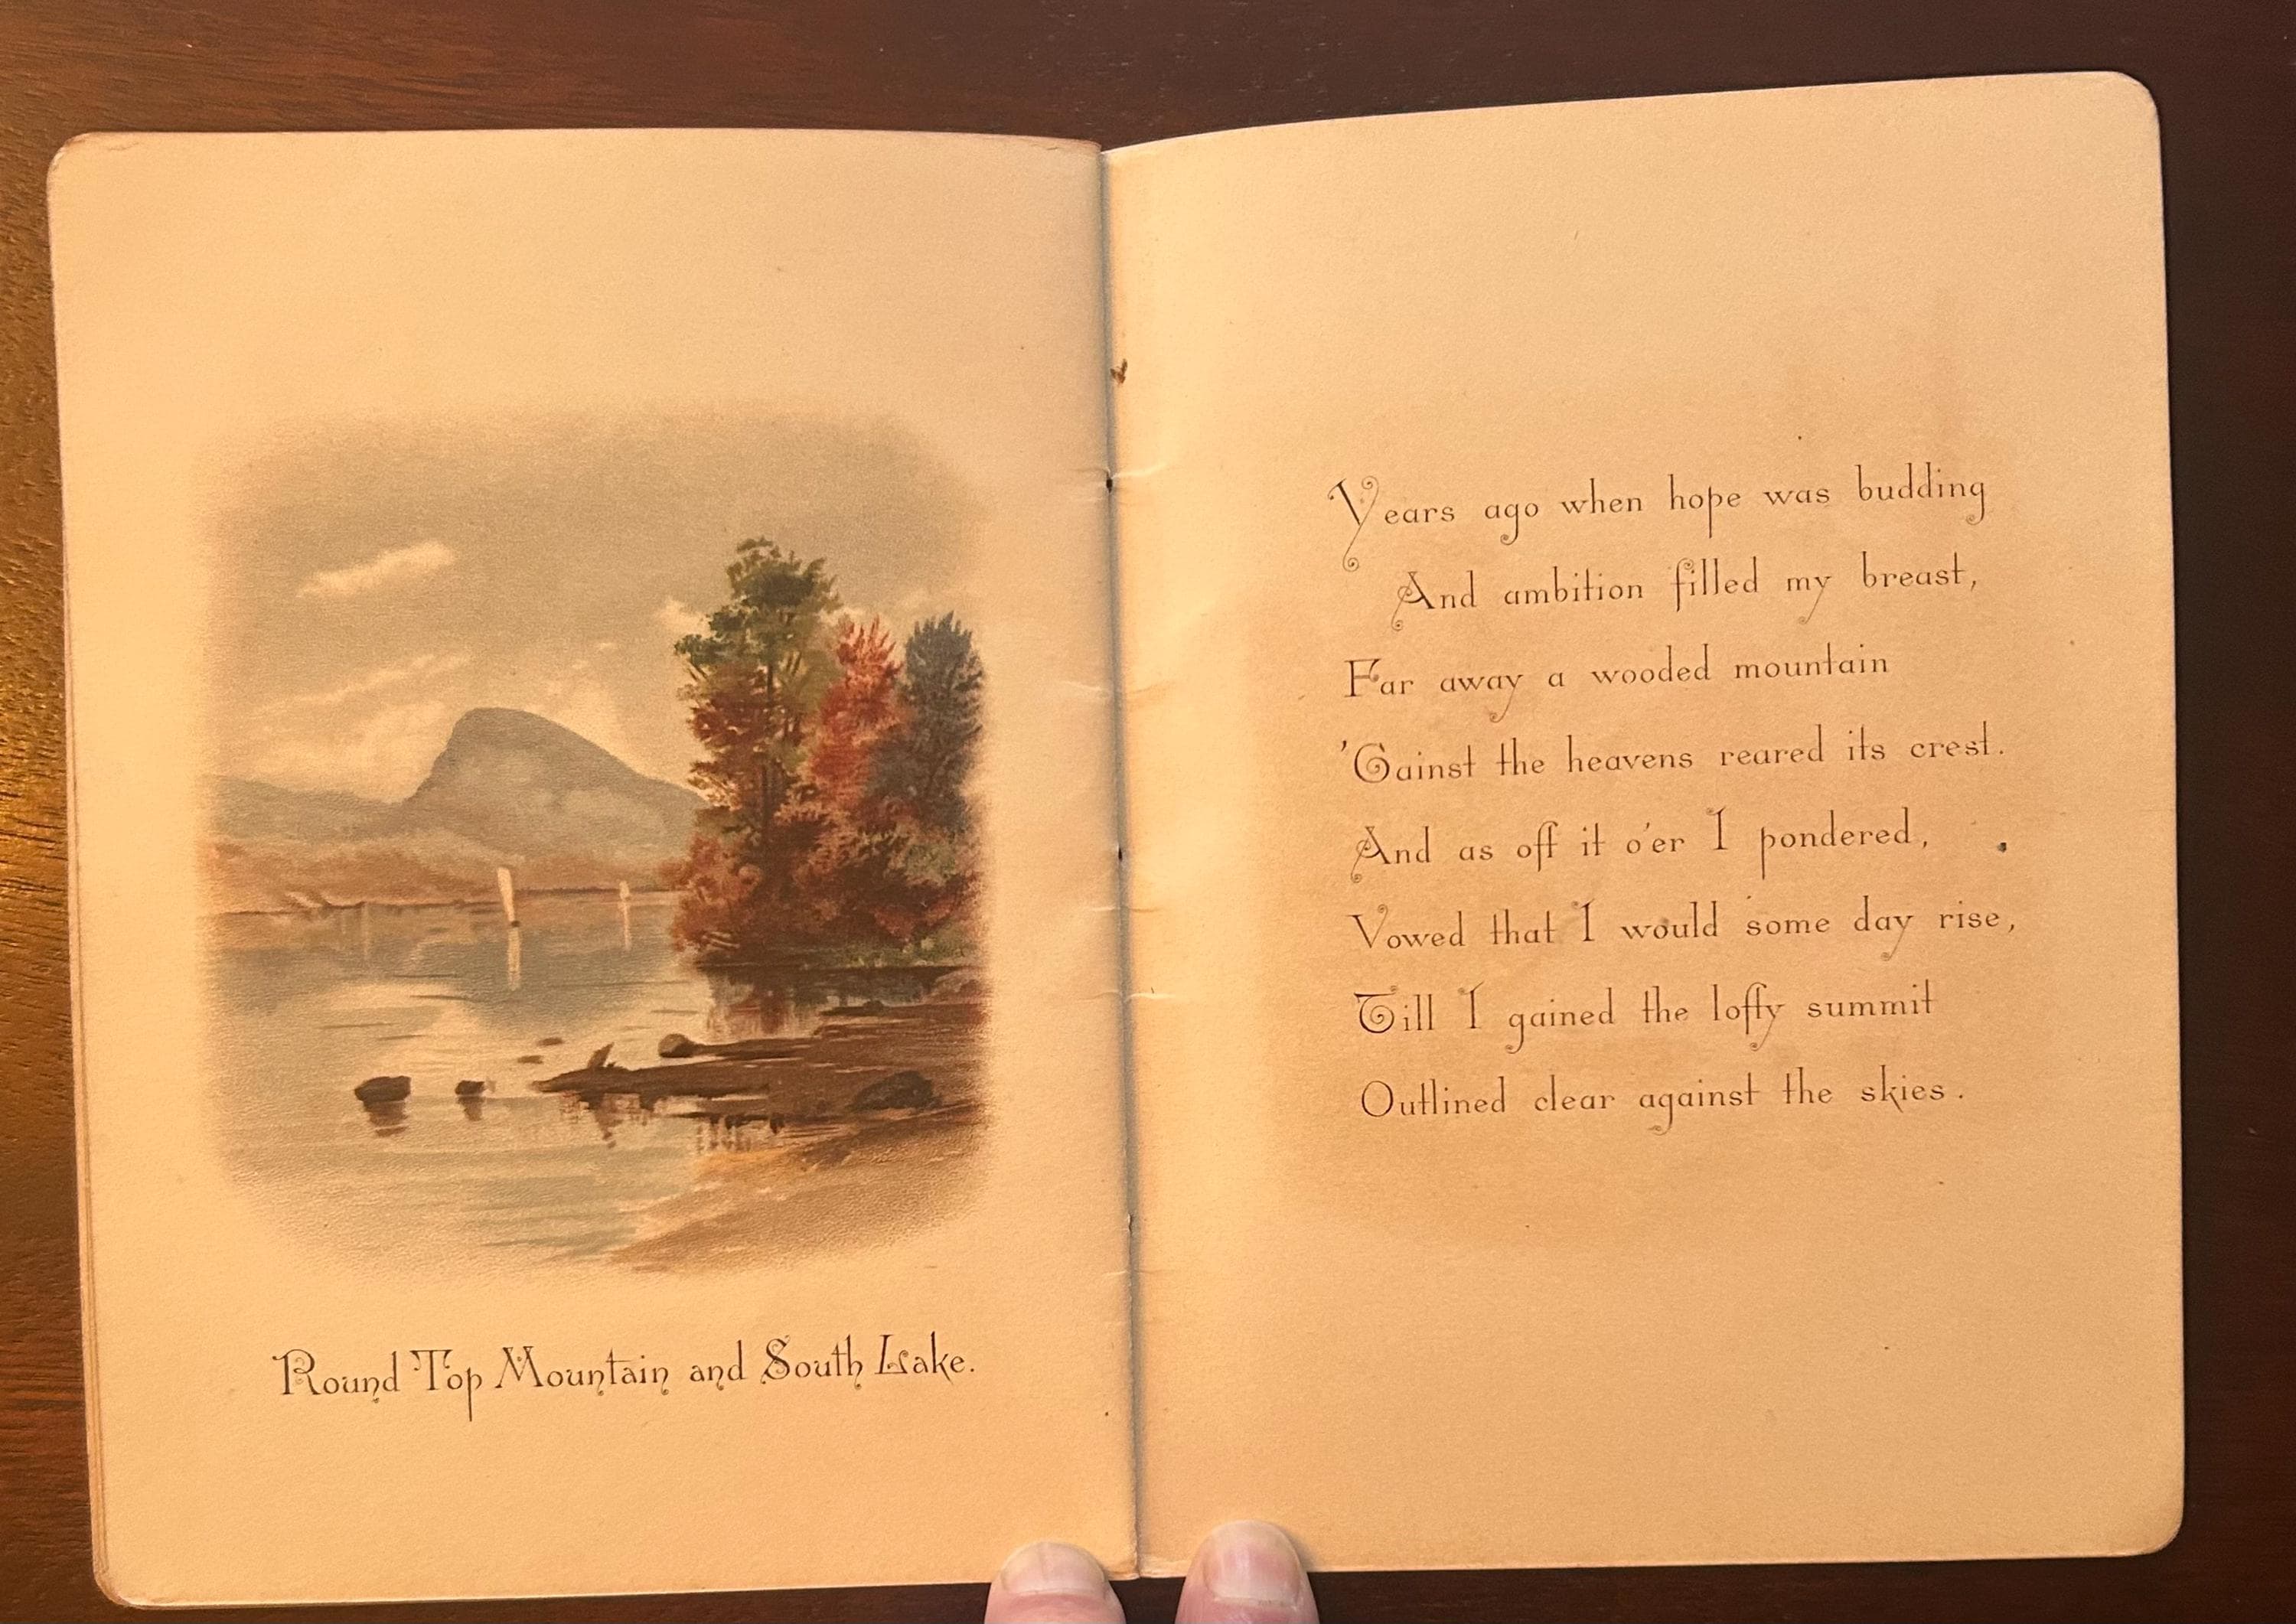 Round Top Mountain and South Lake.
Years ago when hope was budding
And ambition filled my breast,
Far away a wooded mountain
'Gainst the heavens reared its crest.
And as oft it o'er I pondered,
Vowed that I would some day rise,
Till I gained the lofty summit
Outlined clear against the skies.